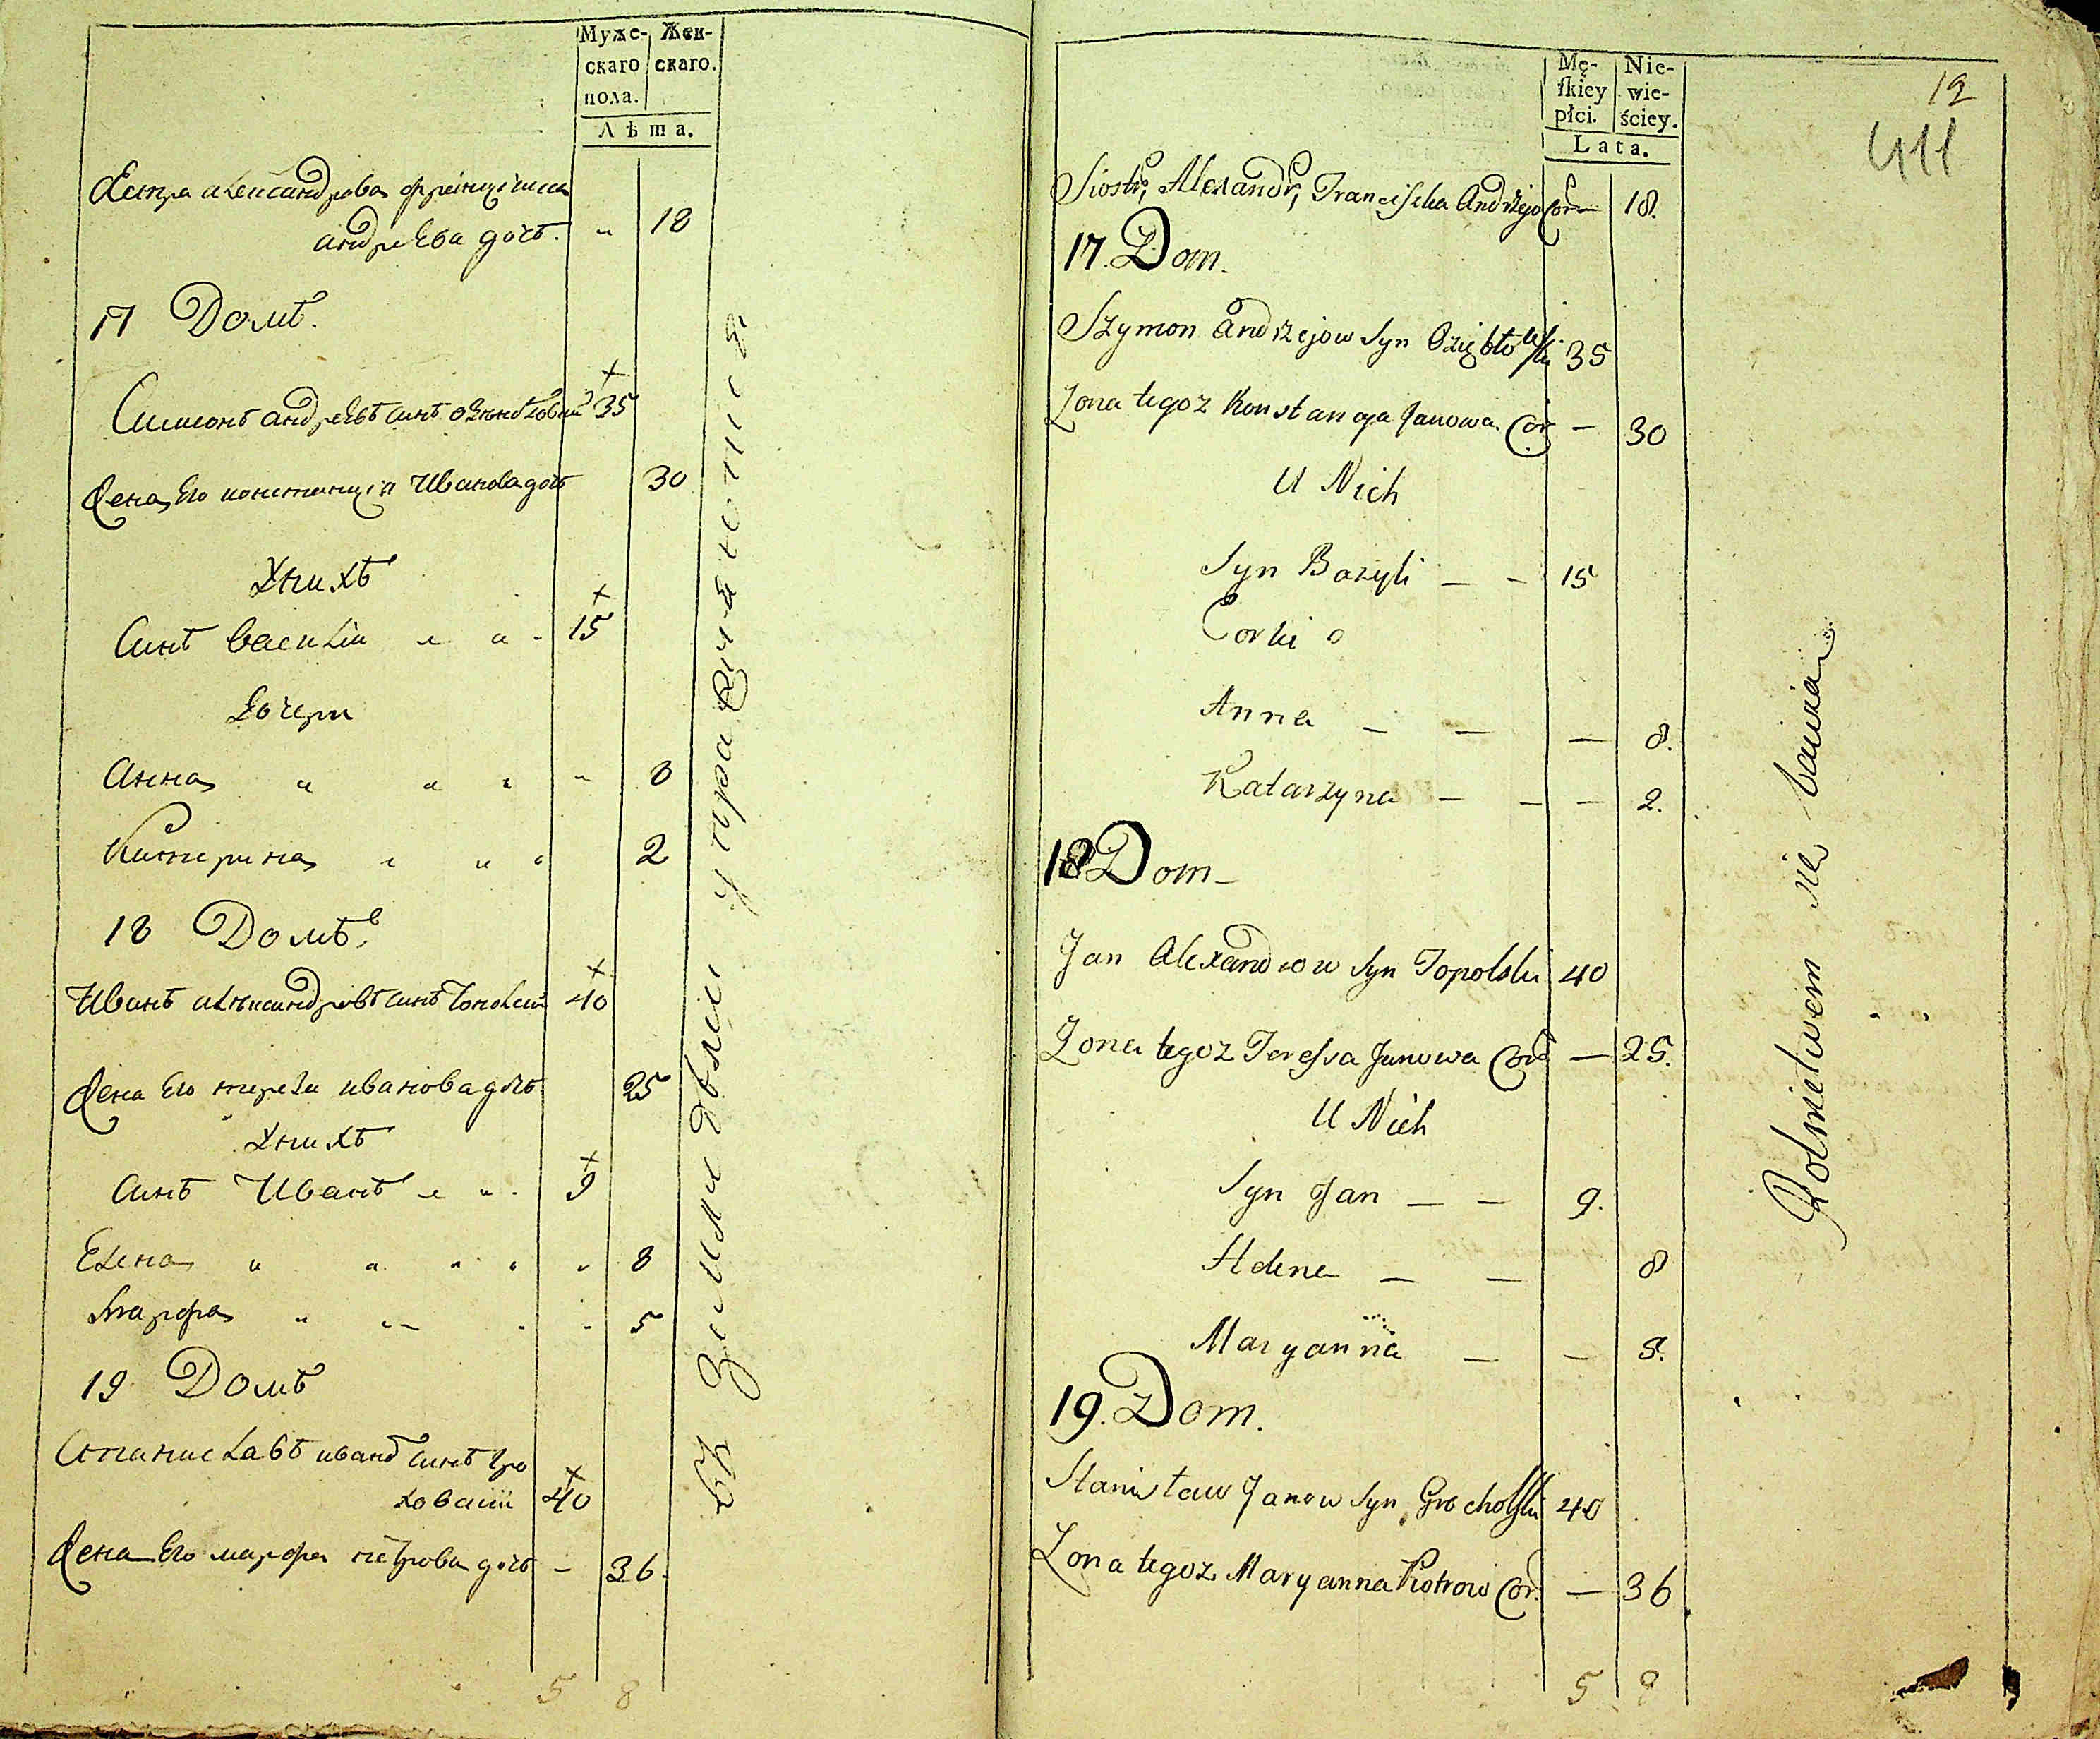 Муже- Жен-
скаго скаго.
пола.
Лѣта.
Сестра александрова францишка
андреева дочь. " 18
17 Домъ.
Симонъ андреевъ синъ 35
Жена Его констанція Иванова дочь 30
У нихъ
Синъ василій " " - 15
Дочери
Анна " " " " 8
Катерина " " " 2
18 Домъ.
Иванъ александровъ синъ тополскій 40
Жена Его тереза иванова дочь 25
У нихъ
Синъ Иванъ " " - 9
Елена " " " " " 8
Марфа " " - - 5
19 Домъ
Станиславъ иванов синъ гро
ховскій 40
Жена Его марфа петрова дочь - 36.
5 8
въ Земли двым упражненія
Mę- Nie-
ſkiey wie-
płci. ściey.
Lata.
12
411
Siostr, Alexandr, Franciszka Andrzejo Cor — 18.
17. Dom.
Szymon Andrzejow Syn 35
Zona tegoz Konstancya Janowa Cor — 30
U Nich
Syn Bazyli — — 15
Corki 2
Anna — — — 8.
Katarzyna — — — 2.
18 Dom —
Jan Alexandrow Syn Topolski 40
Zona tegoz Teressa Janowa Cor — 25.
U Nich
Syn Jan — — 9.
Helena — — 8
Maryanna — — 5.
19. Dom.
Stanisław Janow Syn Grocholski 40
Zona tegoz Maryanna Piotrow Cor. — 36
5 8
Rolnictwem się bawią